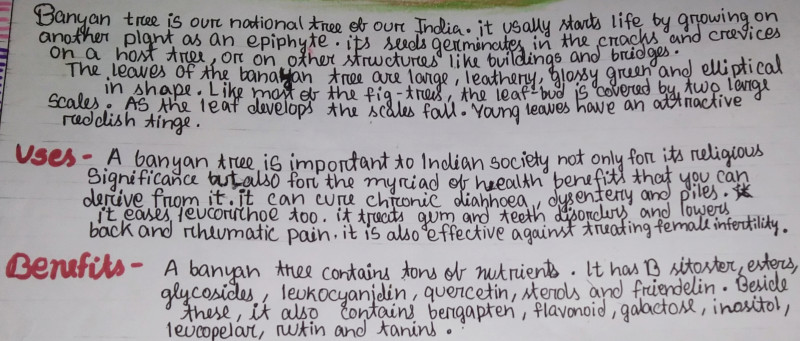 Banyan tree is our national tree of our India. it usally starts life by growing on
another plant as an epiphyte. its seeds germinates in the cracks and crevices
on a host tree, or on other structures like buildings and bridges.
The leaves of the banayan tree are large, leathery, glossy green and elliptical
in shape. Like most of the fig-trees, the leaf-bud is covered by two large
scales. As the leaf develops the scales fall. Young leaves have an attractive
reddish tinge.
Uses - A banyan tree is important to Indian society not only for its religious
Significance but also for the myriad of health benefits that you can
derive from it. it can cure chronic diahhoea, dysentery and piles.
it eases leucorrhoe too. it treats gum and teeth disorders and lowers
back and rheumatic pain. it is also effective against treating female infertility.
Benifits - A banyan tree contains tons of nutrients. It has B sitoster, esters,
glycosides, leukocyanidin, quercetin, sterols and friendelin. Beside
these, it also contains bergapten, flavonoid, galactose, inositol,
leucopelar, rutin and tanins.